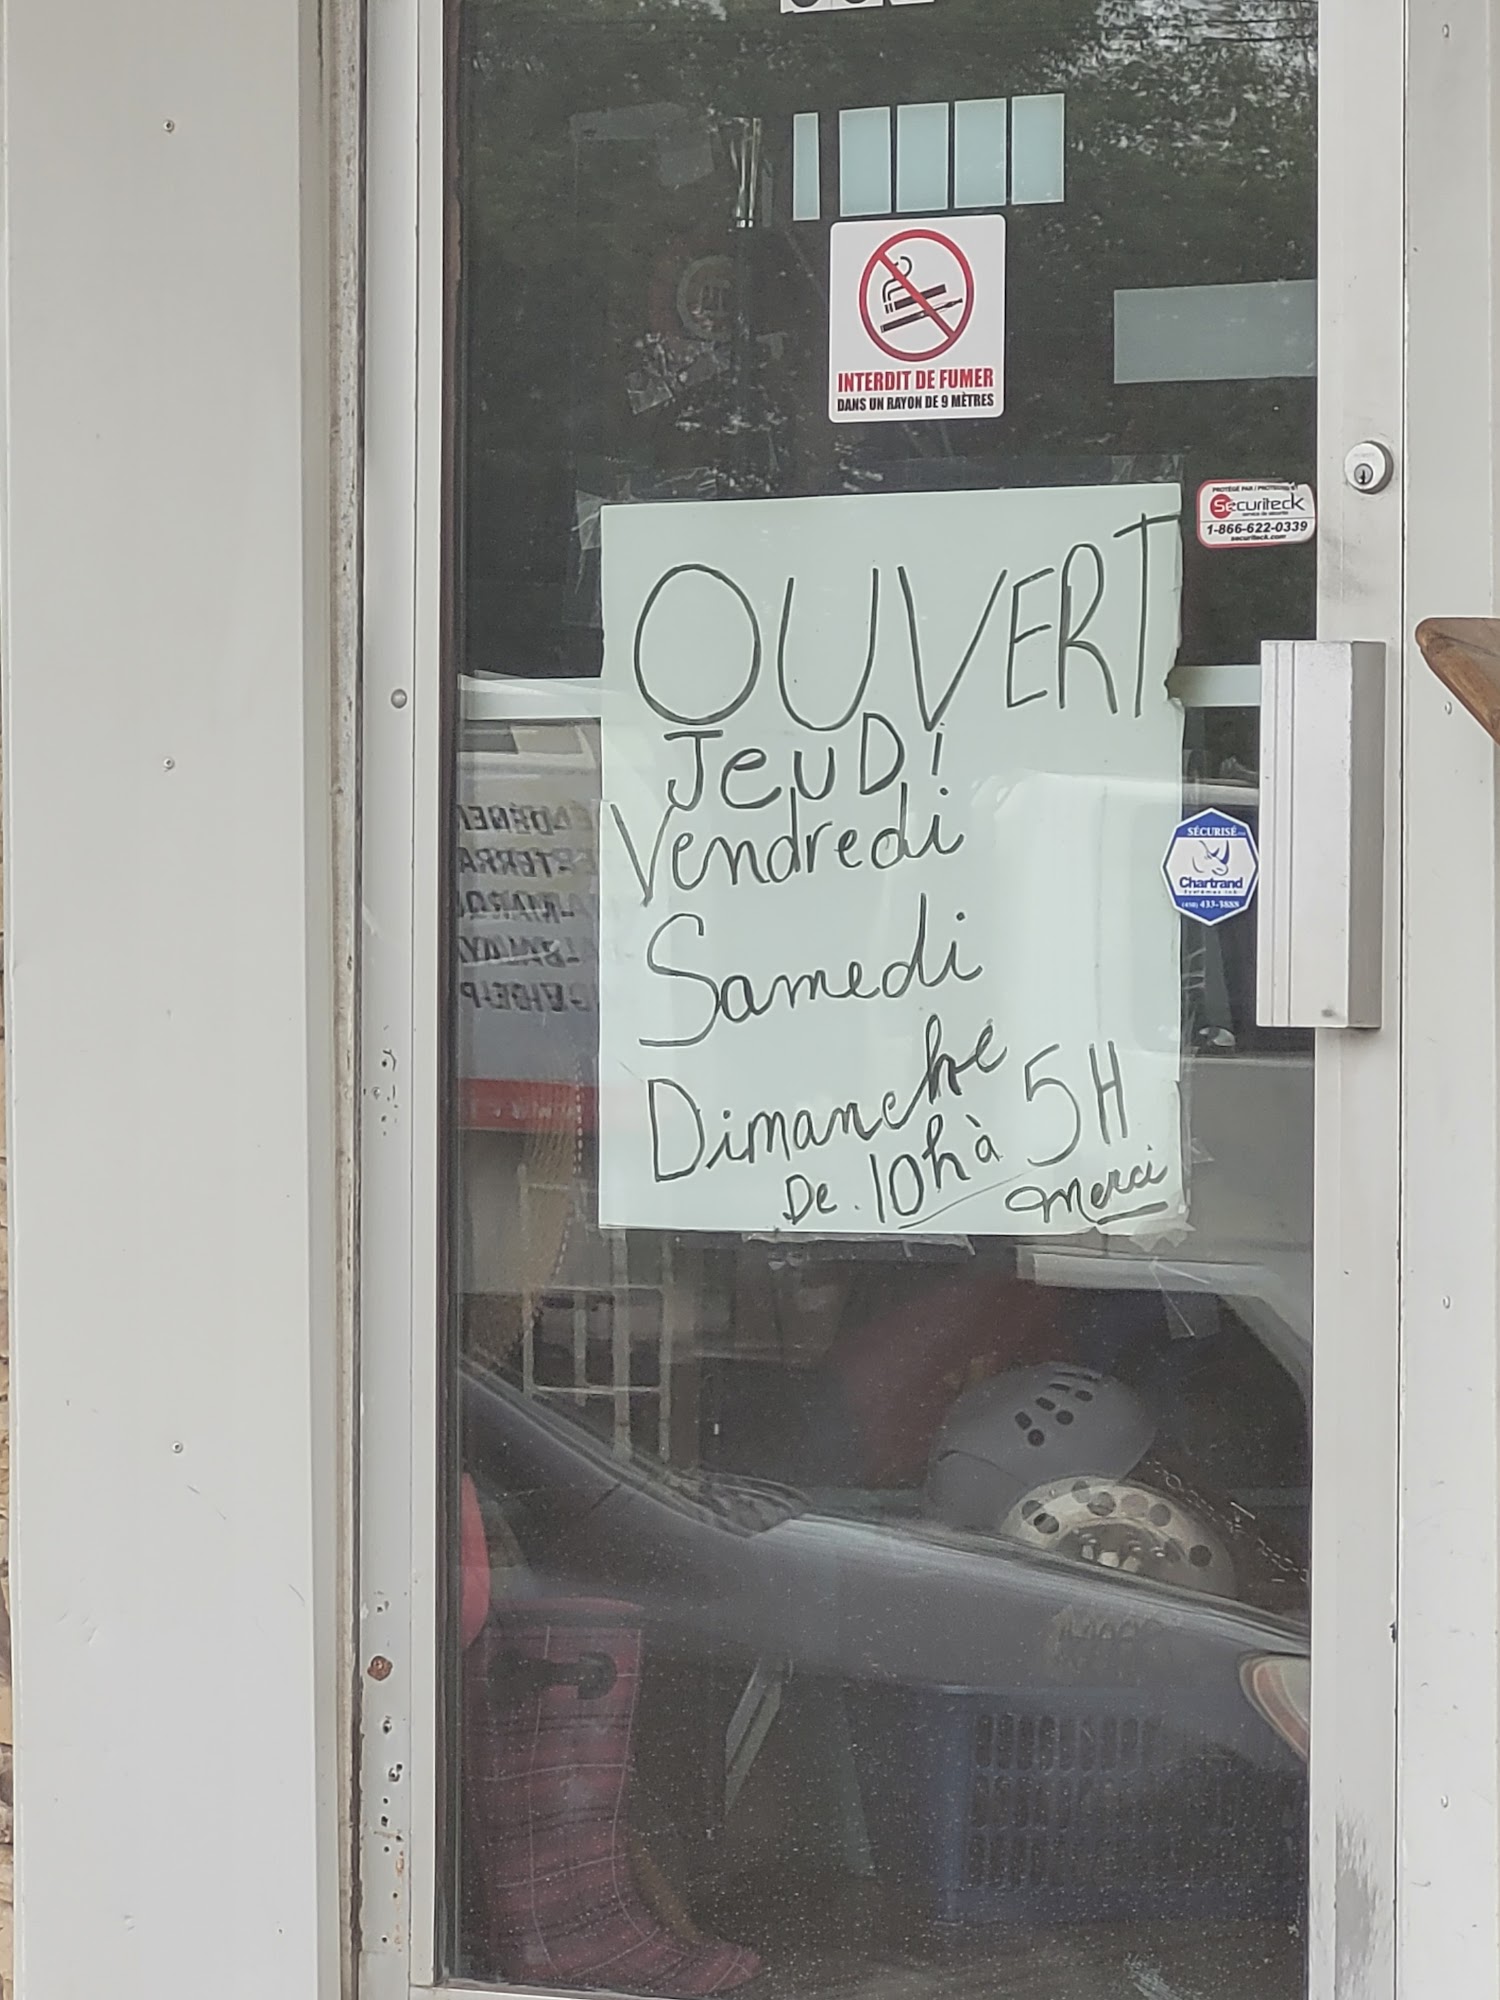 INTERDIT DE FUMER
DANS UN RAYON DE 9 MÈTRES
Securiteck
1-866-622-0339
securiteck.com
OUVERT
JeuDi
Vendredi
Samedi
Dimanche
De. 10h à 5H
Merci
SÉCURISÉ
Chartrand
(450) 433-3888